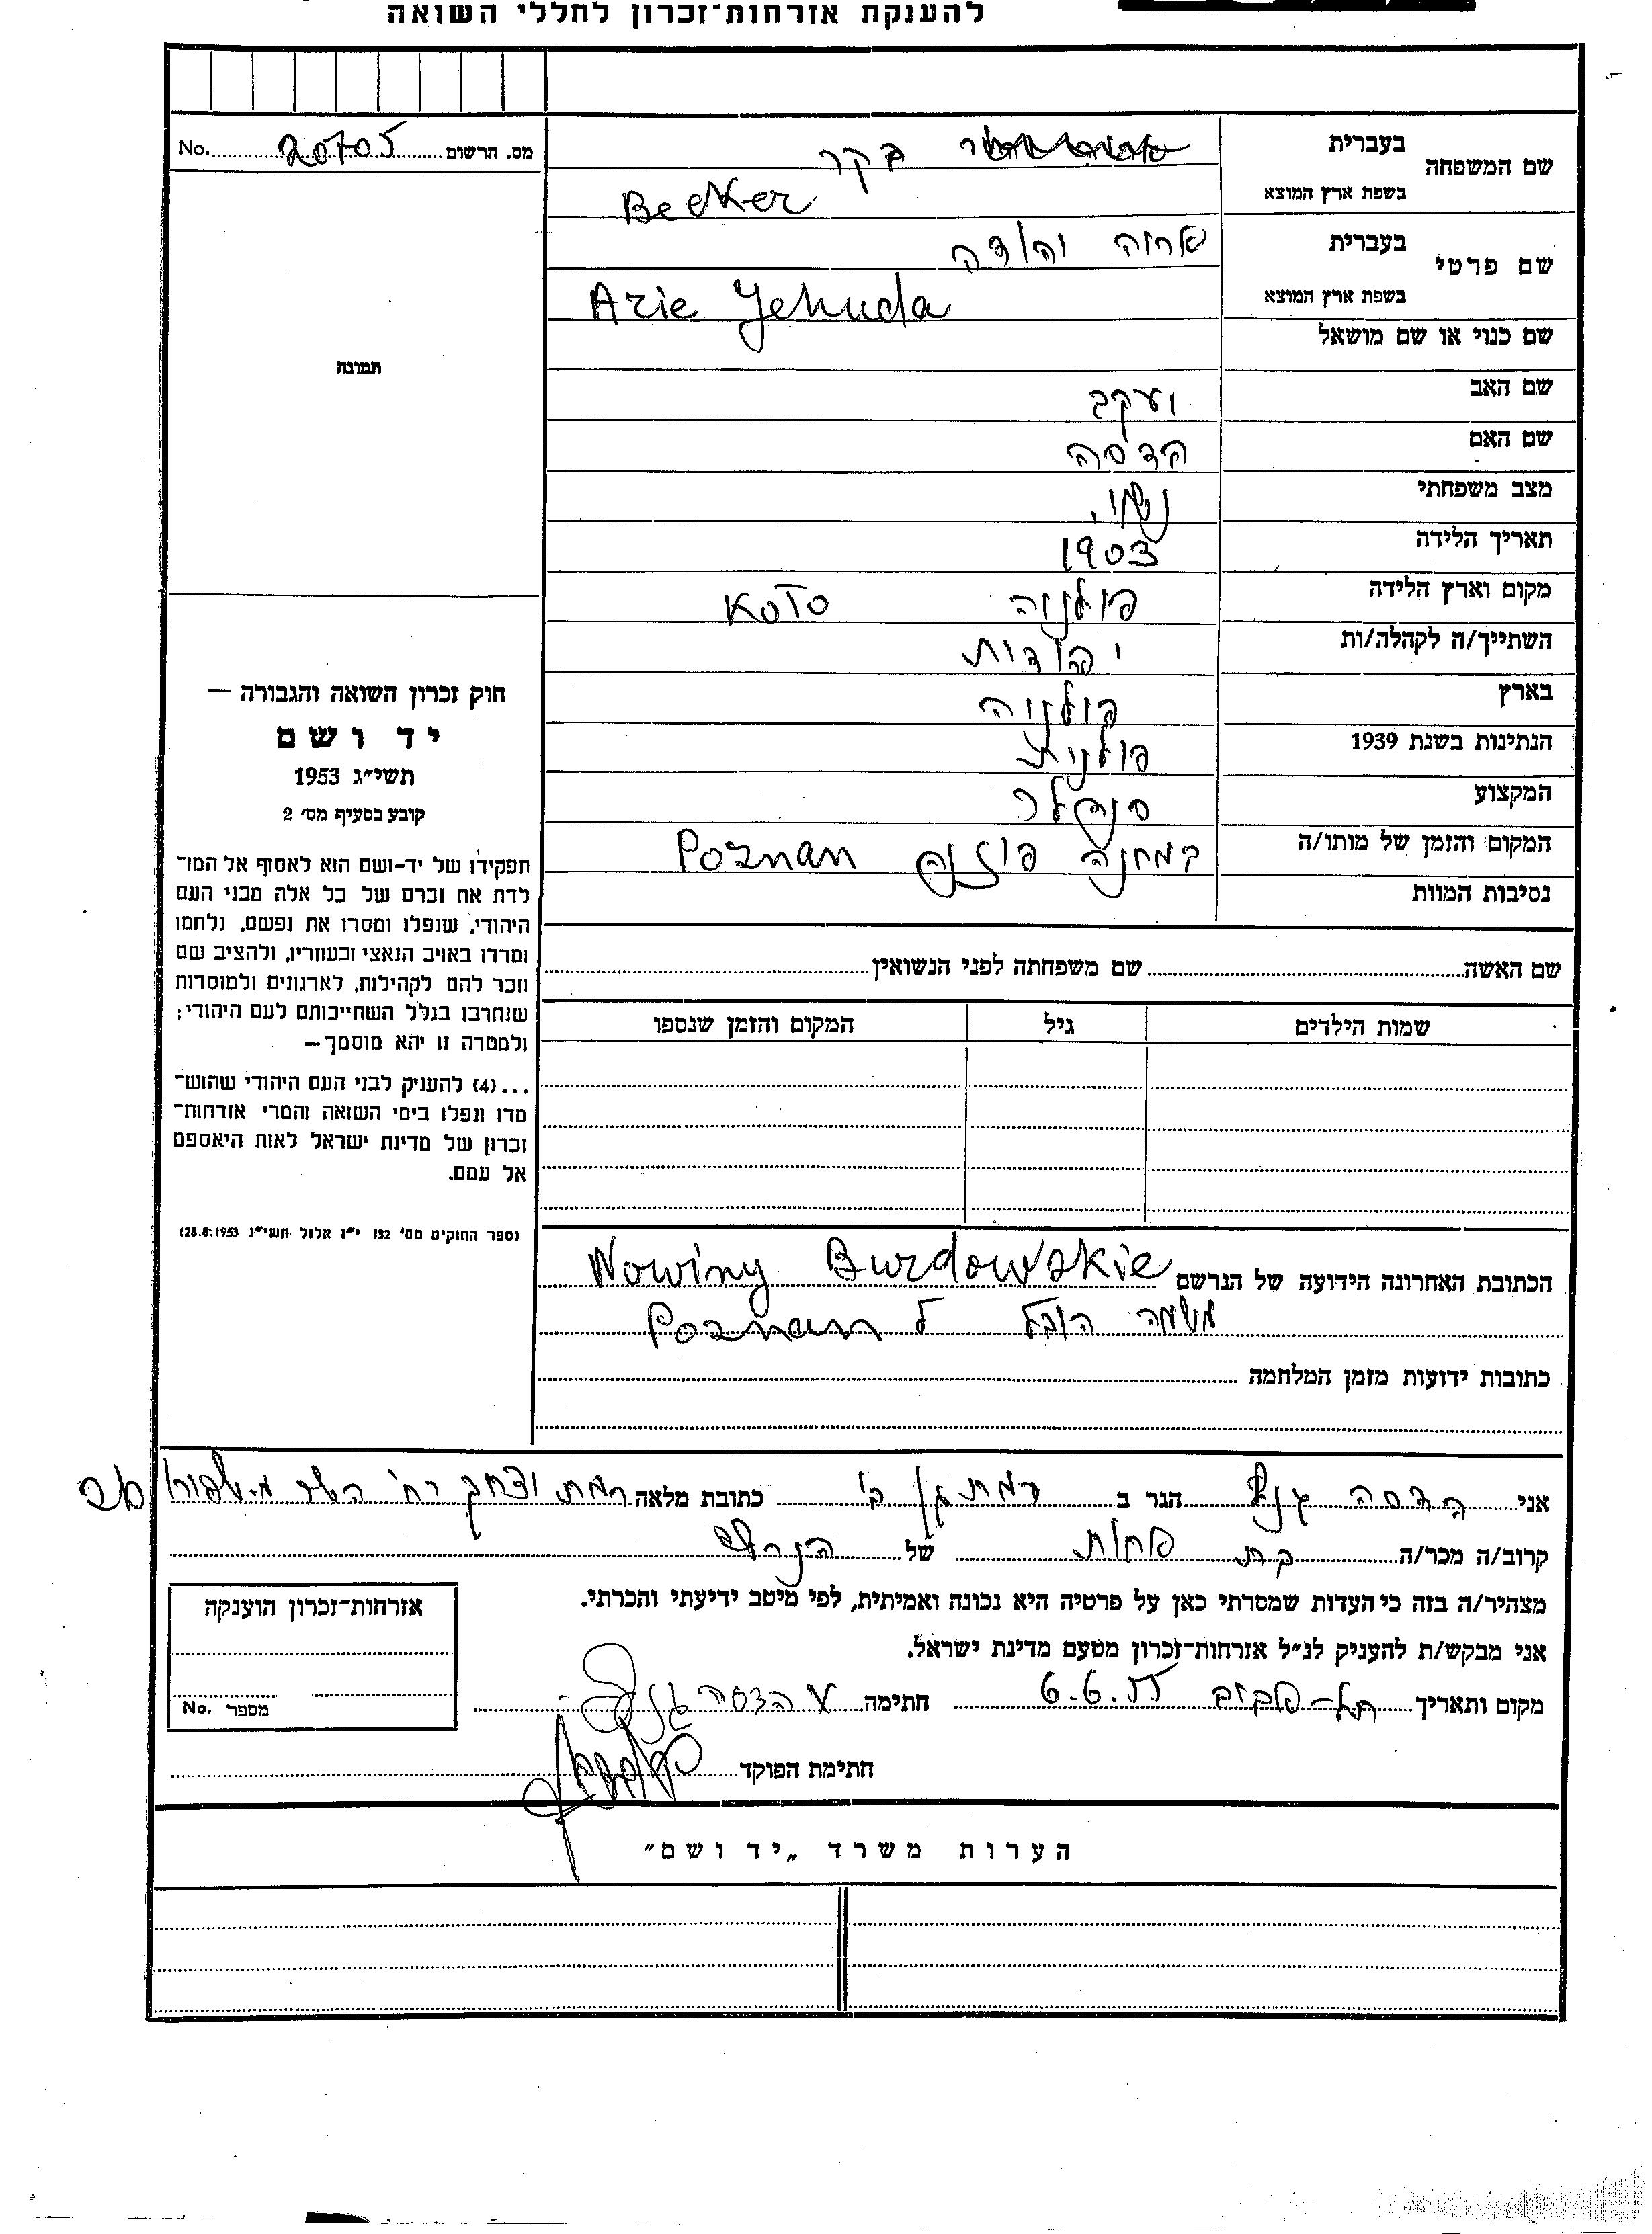 להענקת אזרחות־זכרון לחללי השואה
מס. הרשום 20705 No.
שם המשפחה בעברית בקר
בשפת ארץ המוצא Becker
שם פרטי בעברית אריה יהודה
בשפת ארץ המוצא Arie Yehuda
שם כנוי או שם מושאל
שם האב יעקב
שם האם הדסה
מצב משפחתי נשוי
תאריך הלידה 1903
מקום וארץ הלידה פולניה KOTO
השתייך/ה לקהלה/ות יהודית
בארץ פולניה
הנתינות בשנת 1939 פולנית
המקצוע סנדלר
המקום והזמן של מותו/ה במחנה פוזנה Poznan
נסיבות המוות
תמונה
חוק זכרון השואה והגבורה —
יד ושם
תשי״ג 1953
קובע בסעיף מס׳ 2
תפקידו של יד-ושם הוא לאסוף אל המו־
לדת את זכרם של כל אלה מבני העם
היהודי, שנפלו ומסרו את נפשם, נלחמו
ומרדו באויב הנאצי ובעוזריו, ולהציב שם
וזכר להם לקהילות, לארגונים ולמוסדות
שנחרבו בגלל השתייכותם לעם היהודי;
ולמטרה זו יהא מוסמך—
...(4) להעניק לבני העם היהודי שהוש־
מדו ונפלו בימי השואה והמרי אזרחות־
זכרון של מדינת ישראל לאות היאספם
אל עמם.
(ספר החוקים מס׳ 132 י״ז אלול תשי״ג 28.8.1953)
שם האשה שם משפחתה לפני הנשואין
שמות הילדים גיל המקום והזמן שנספו
הכתובת האחרונה הידועה של הנרשם Nowiny Burdowskie
משמה הובל ל Poznan
כתובות ידועות מזמן המלחמה
אני הדסה הגר ב רמת גן כתובת מלאה רמת יצחק רח׳
קרוב/ה מכר/ה בת אחות של הנרשם
מצהיר/ה בזה כי העדות שמסרתי כאן על פרטיה היא נכונה ואמיתית, לפי מיטב ידיעתי והכרתי.
אני מבקש/ת להעניק לנ״ל אזרחות־זכרון מטעם מדינת ישראל.
מקום ותאריך תל-אביב 6.6.55 חתימה הדסה
חתימת הפוקד
אזרחות־זכרון הוענקה
מספר No.
הערות משרד „יד ושם״